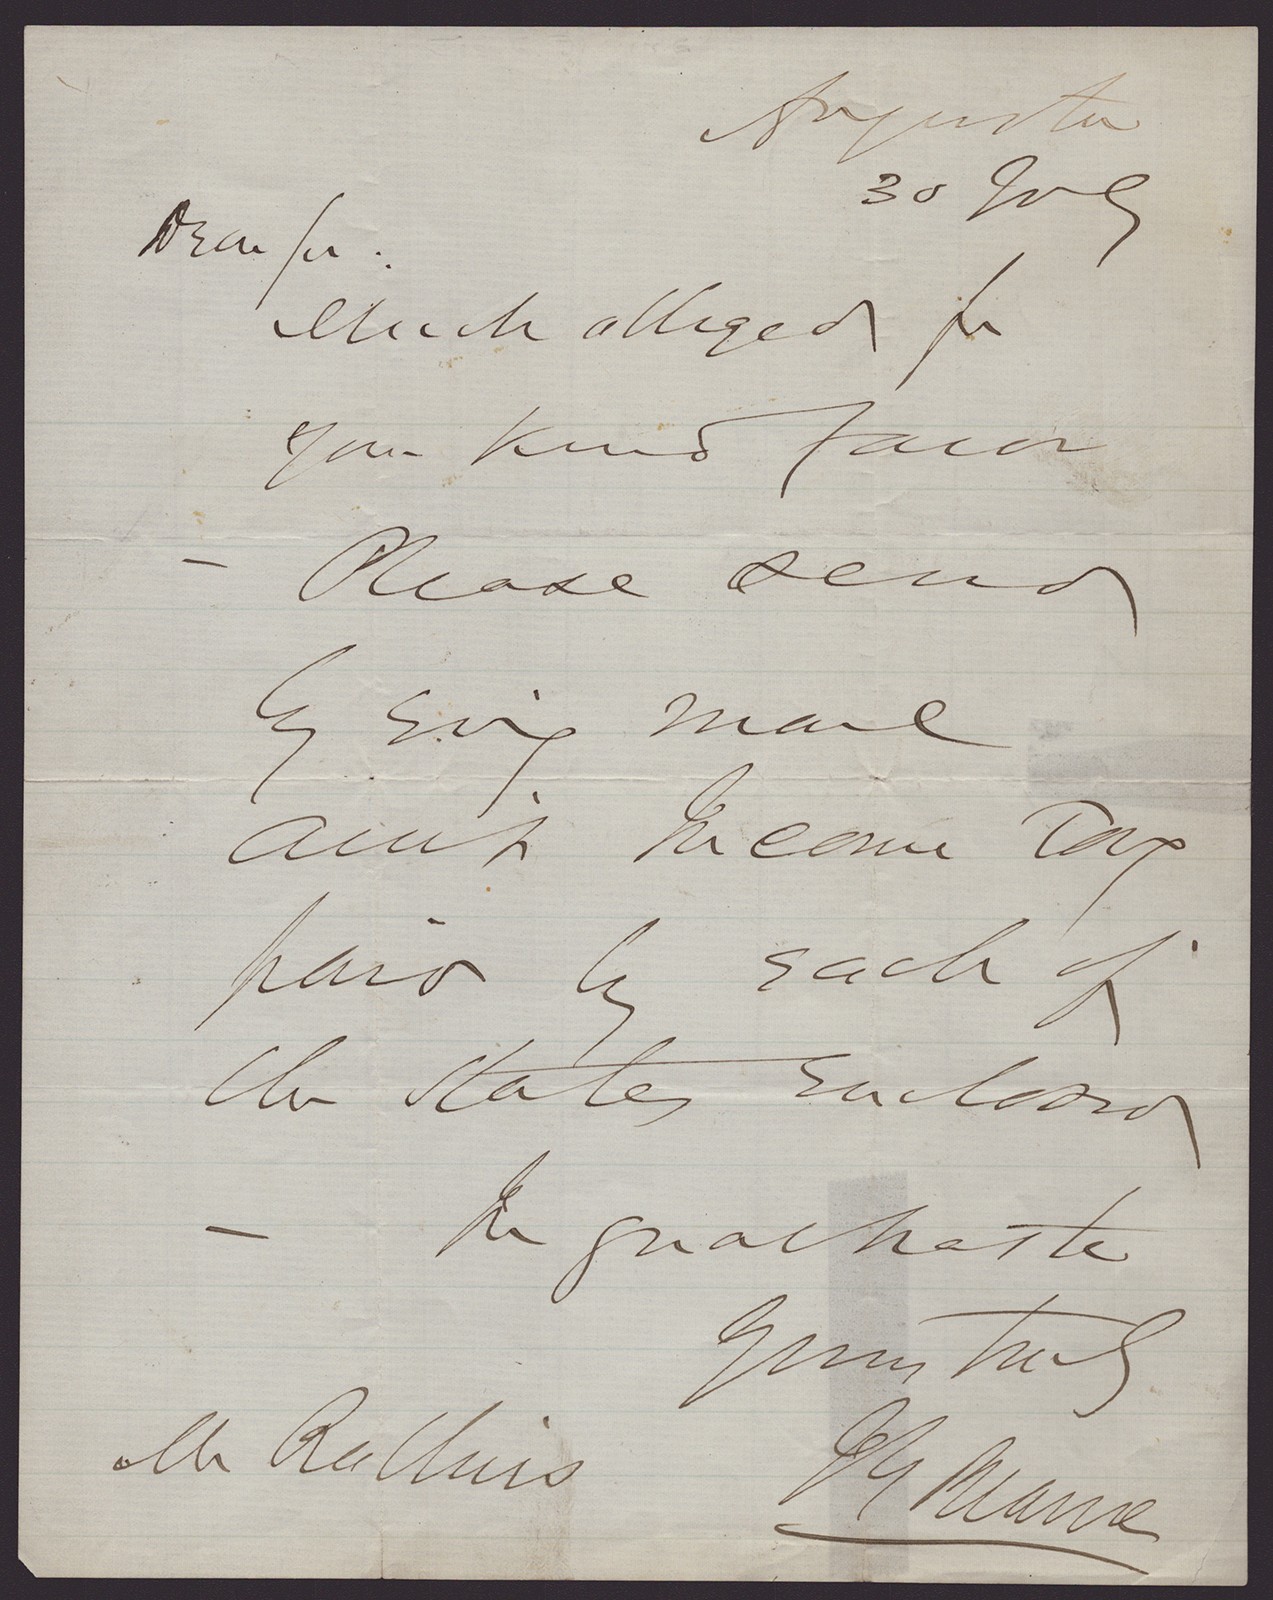 Augusta
30 July
Dear Sir.
Much obliged for
your kind favor
- Please send
by evg mail
am't Income Tax
paid by each of
the States enclosed
- In great haste
Yours truly
J G Blaine
Mr Rollins